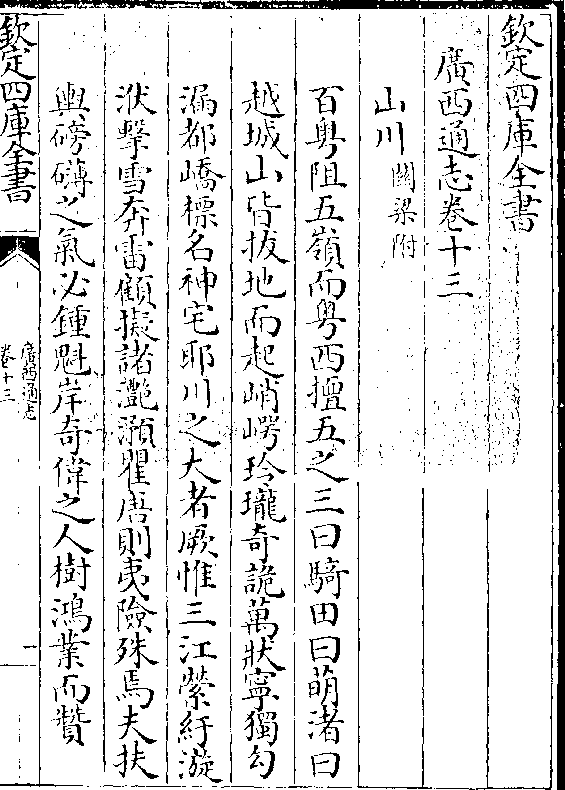 欽定四庫全書
廣西通志卷十三
山川關梁附
百粤阻五嶺而粤西擅五之三曰騎田曰萌渚曰
越城山皆拔地而起峭崿玲瓏奇詭萬狀寧獨勾
漏都嶠標名神宅耶川之大者厥惟三江縈紆漩
洑擊雪奔雷顧擬諸灔澦瞿唐則夷險殊焉夫扶
輿磅礴之氣必鍾魁岸奇偉之人樹鴻業而贊
欽定四庫全書
廣西通志
卷十三
一